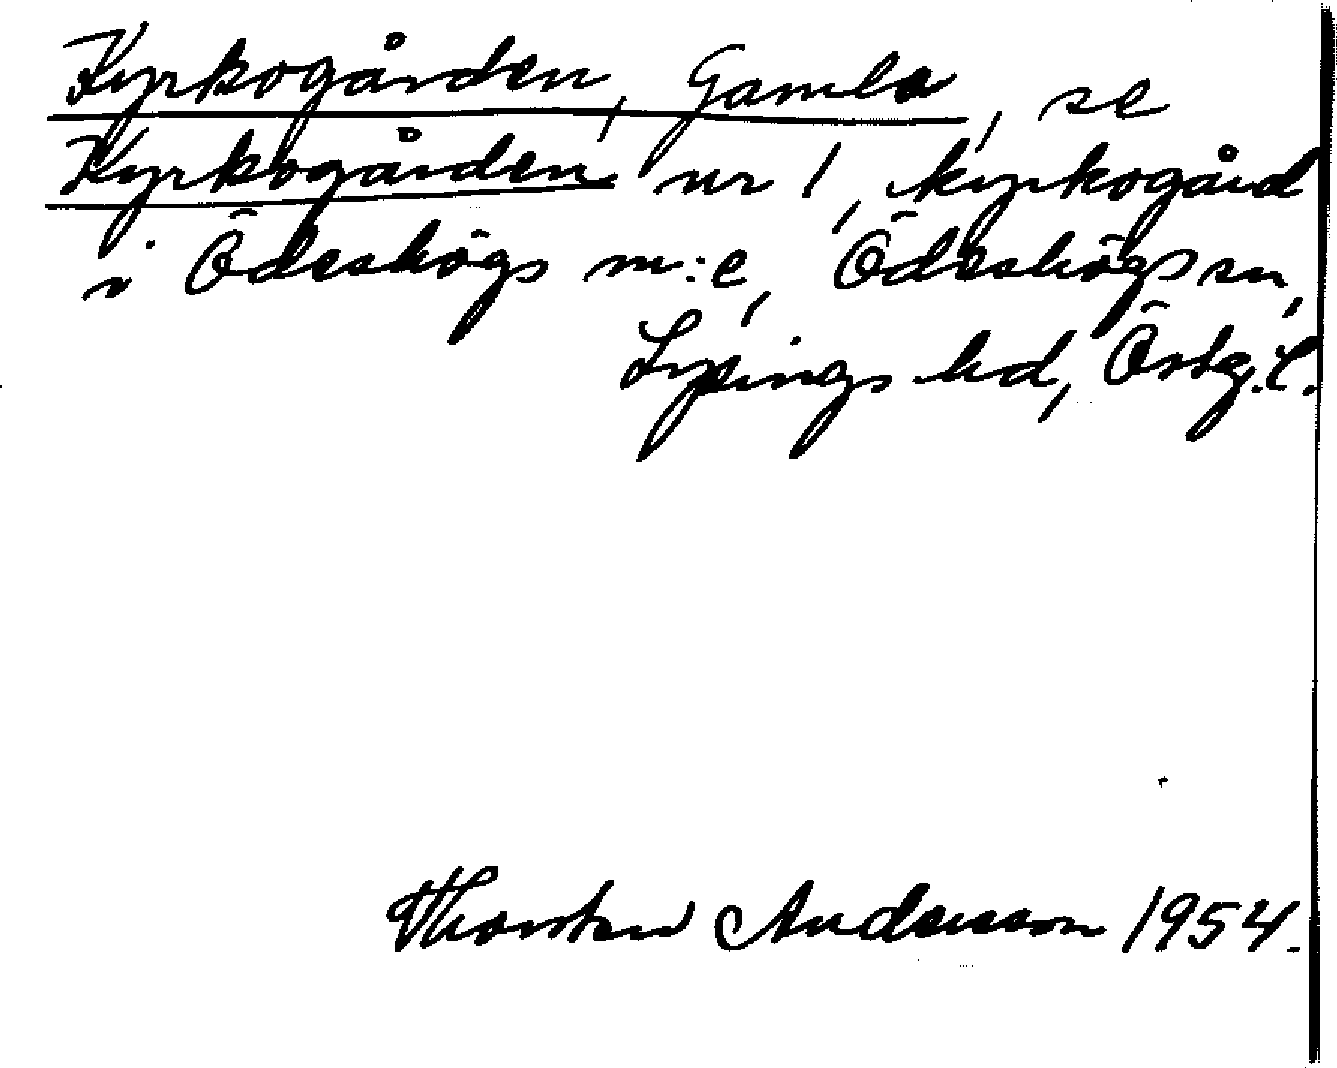 Kyrkogården, Gamla, se
Kyrkogården nr 1, kyrkogård
i Ödeshögs m:e, Ödeshögs sn,
Lysings hd, Östg. l.
Thorsten Andersson 1954.